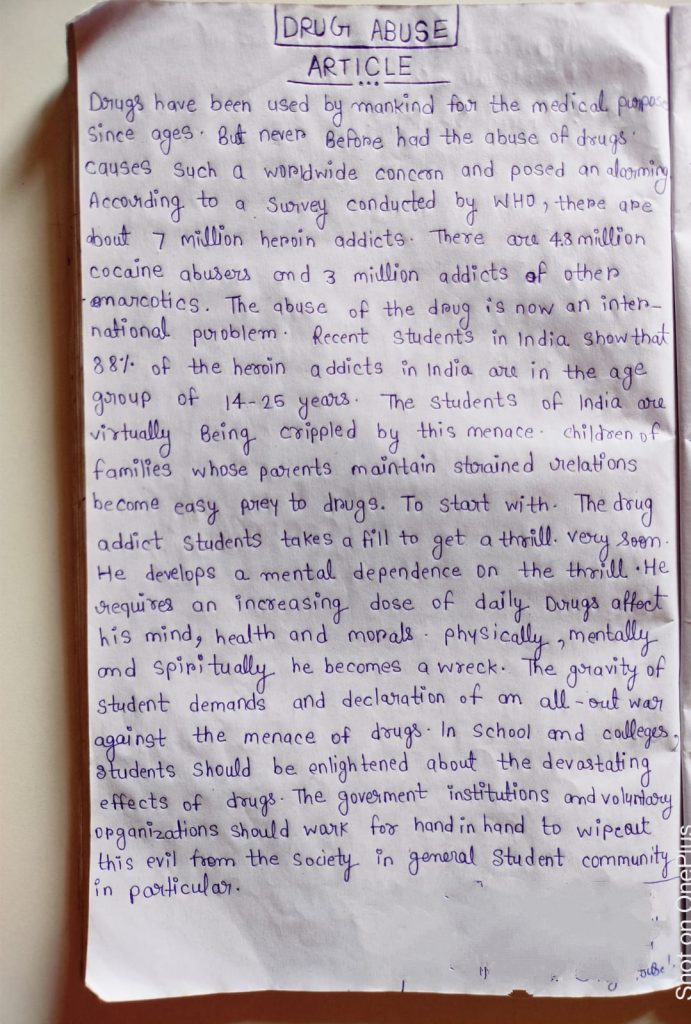 DRUG ABUSE
ARTICLE
Drugs have been used by mankind for the medical purpose
since ages. But never Before had the abuse of drugs
causes such a worldwide concern and posed an alarming
According to a survey conducted by WHO, there are
about 7 million heroin addicts. There are 4.8 million
cocaine abusers and 3 million addicts of other
narcotics. The abuse of the drug is now an inter-
national puroblem. Recent students in India show that
88% of the heroin addicts in India are in the age
group of 14-25 years. The students of India are
virtually Being crippled by this menace. children of
families whose parents maintain strained relations
become easy prey to drugs. To start with. The drug
addict students takes a fill to get a thrill. very soon.
He develops a mental dependence on the thrill. He
requires an increasing dose of daily Durugs affect
his mind, health and morals. physically, mentally
and spiritually he becomes a wreck. The gravity of
student demands and declaration of an all-out war
against the menace of drugs. In school and colleges,
students should be enlightened about the devastating
effects of drugs. The goverment institutions and voluntary
organizations should wark for hand in hand to wipeout
this evil from the society in general Student community
in particular.
Shot on OnePlus